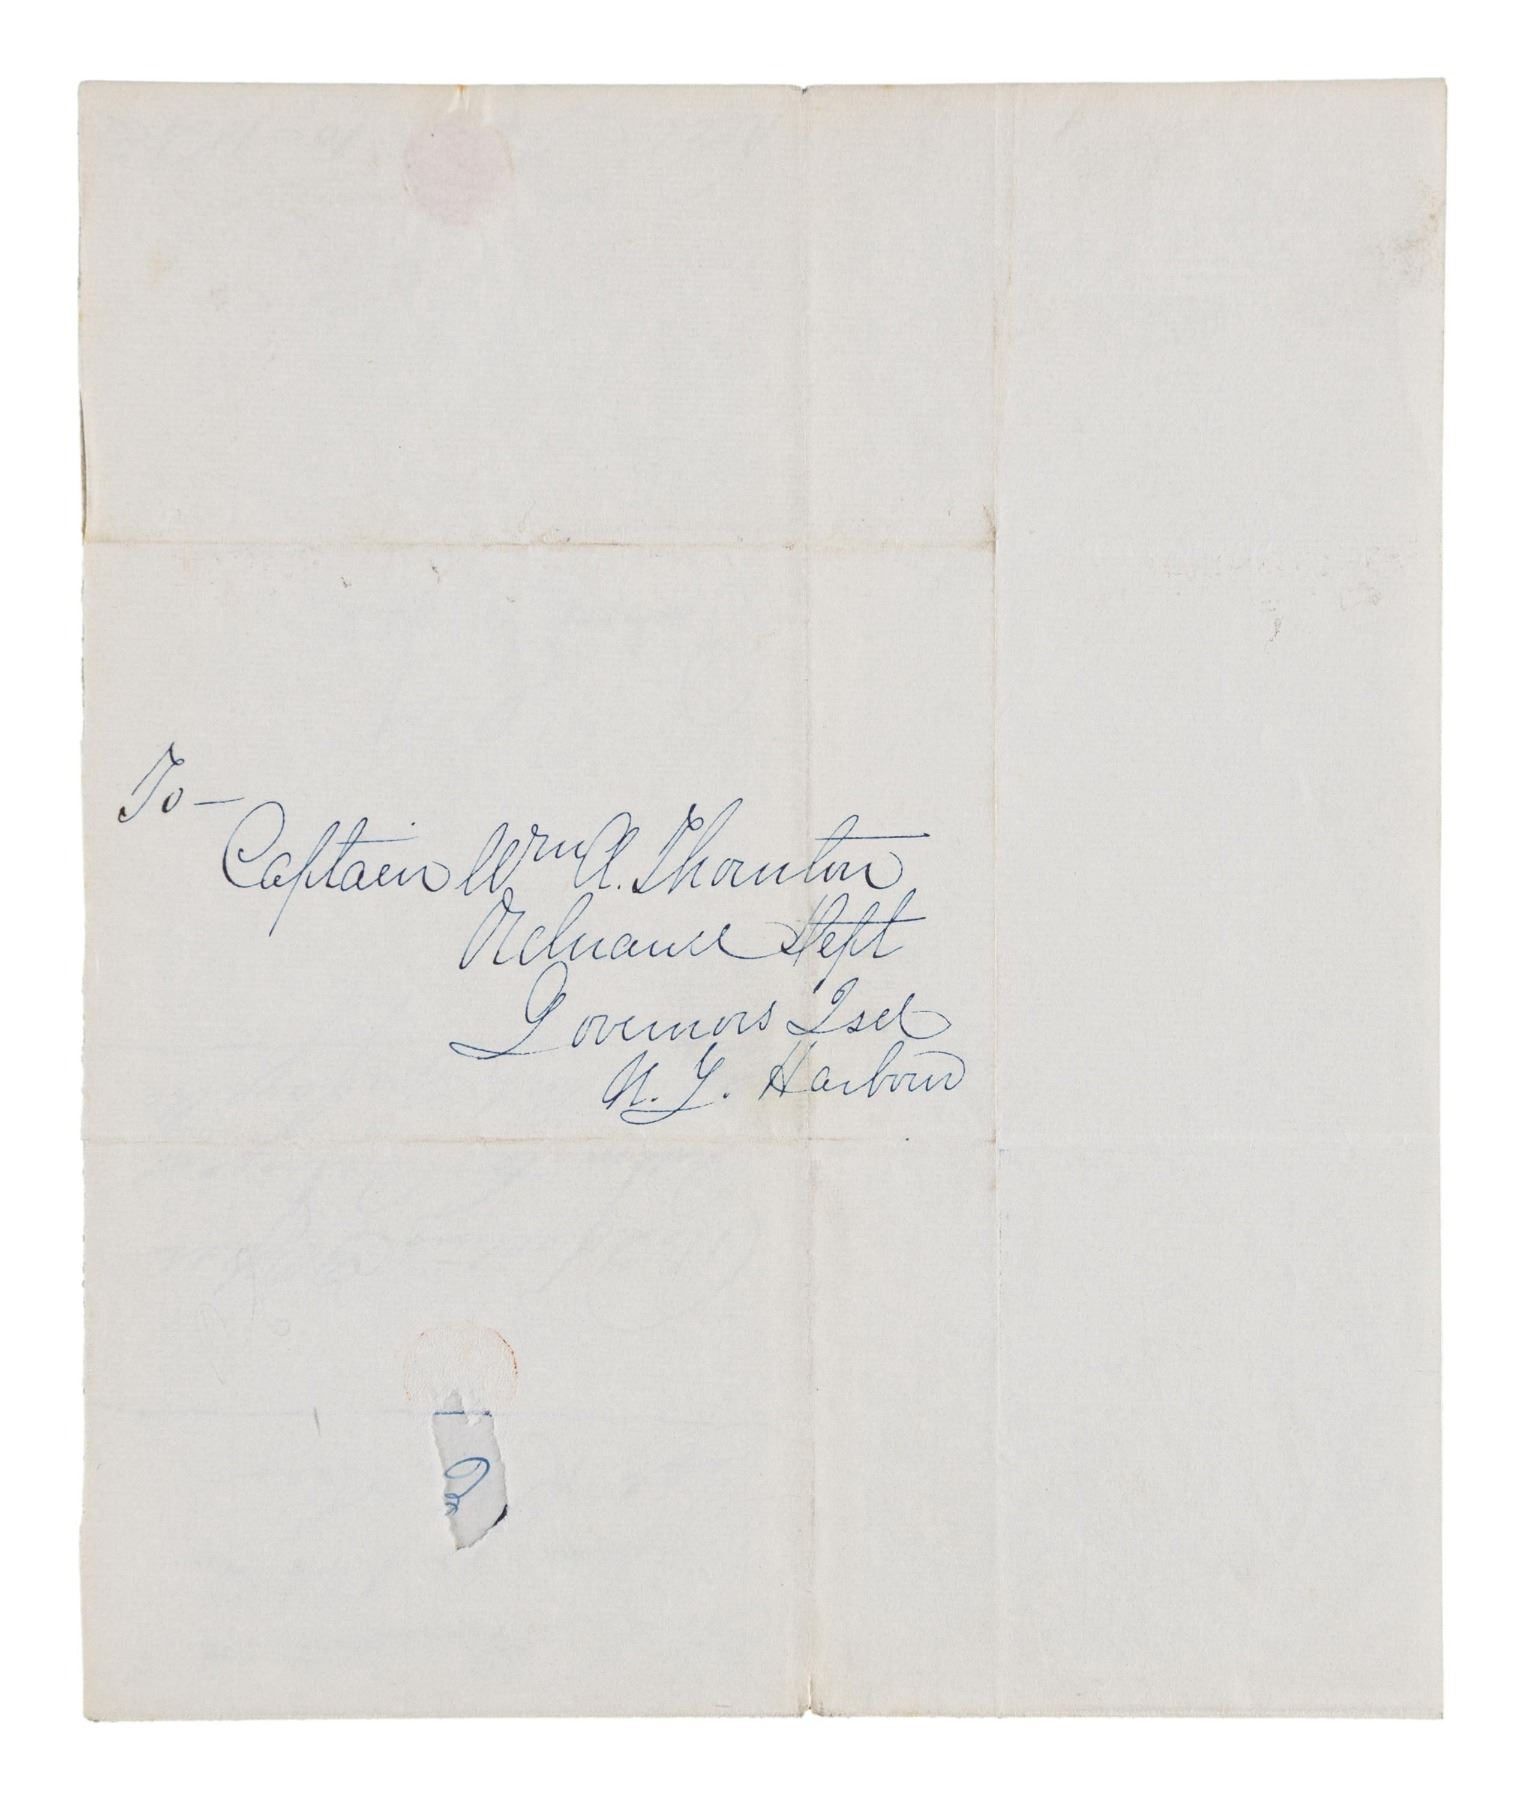 To —
Captain Wm A. Thornton
Ordnance Dept
Governors Isld
N. Y. Harbour